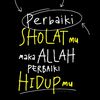 Perbaiki
SHOLAT mu
maka ALLAH
PERBAIKI
HIDUP mu